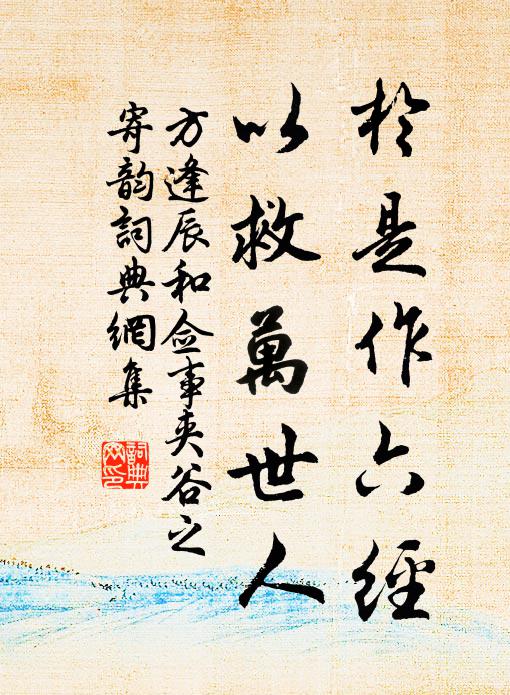 於是作六經
以救萬世人
方逢辰和佥事夹谷之
寄韵詞典網集
詞典
网印